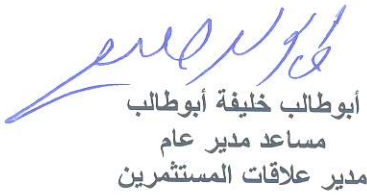 أبوطالب خليفة أبوطالب
مساعد مدير عام
مدير علاقات المستثمرين